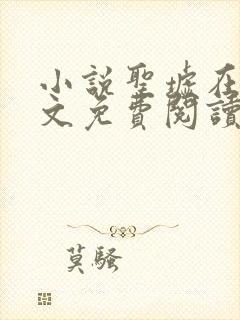 小說聖墟在
文免費閱讀
莫騷